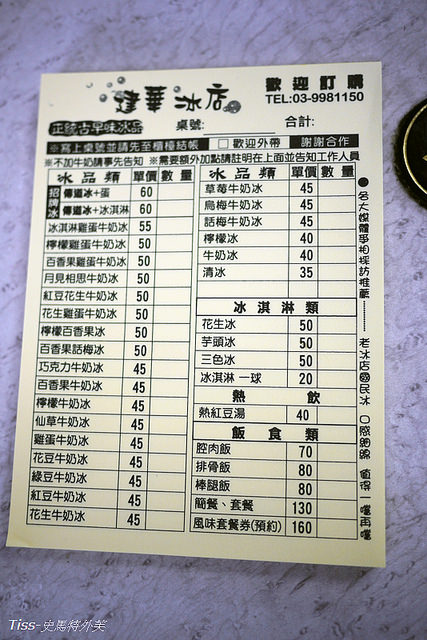 建華冰店
歡迎訂購
TEL:03-9981150
正統古早味冰品
桌號: 合計:
※寫上桌號並請先至櫃檯結帳 □歡迎外帶 謝謝合作
※不加牛奶請事先告知 ※需要額外加點請註明在上面並告知工作人員
冰品類 單價 數量
招牌冰
傳道冰+蛋 60
傳道冰+冰淇淋 60
冰淇淋雞蛋牛奶冰 55
檸檬雞蛋牛奶冰 50
百香果雞蛋牛奶冰 50
月見相思牛奶冰 50
紅豆花生牛奶冰 50
花生雞蛋牛奶冰 50
檸檬百香果冰 50
百香果話梅冰 50
巧克力牛奶冰 45
百香果牛奶冰 45
檸檬牛奶冰 45
仙草牛奶冰 45
雞蛋牛奶冰 45
花豆牛奶冰 45
綠豆牛奶冰 45
紅豆牛奶冰 45
花生牛奶冰 45
冰品類 單價 數量
草莓牛奶冰 45
烏梅牛奶冰 45
話梅牛奶冰 45
檸檬冰 40
牛奶冰 40
清冰 35
冰淇淋類
花生冰 50
芋頭冰 50
三色冰 50
冰淇淋 一球 20
熱飲
熱紅豆湯 40
飯食類
腔肉飯 70
排骨飯 80
棒腿飯 80
簡餐、套餐 130
風味套餐券(預約) 160
●各大媒體爭相採訪推薦……… 老冰店國民冰 口感細綿 值得一嚐再嚐
Tiss-史馬特外芙